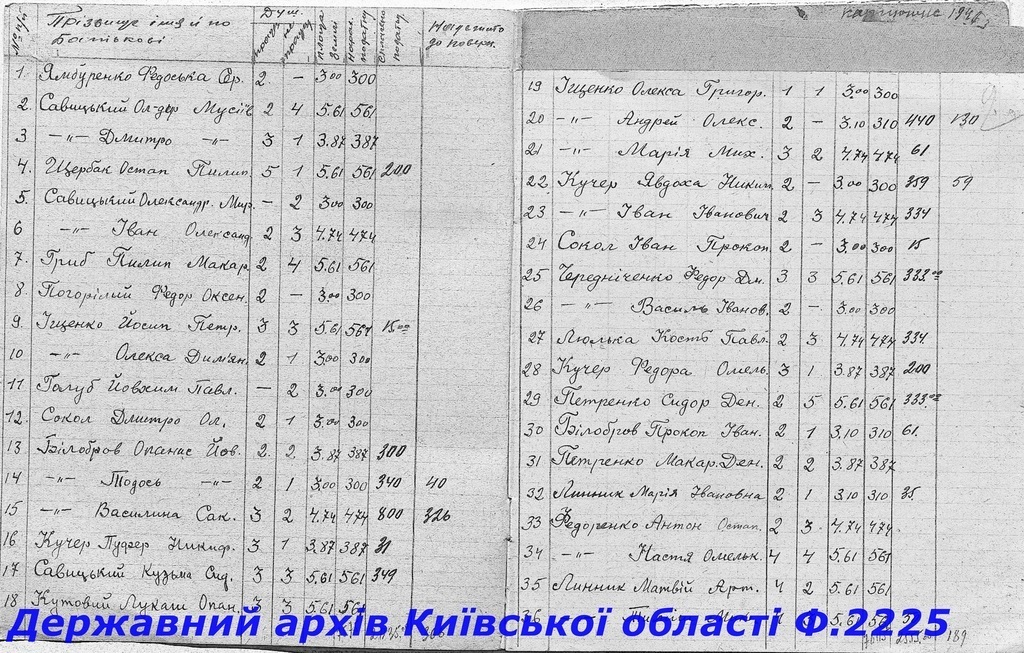 № п/п Прізвище імя и по Батькові Душ праце не працез площа землі Нарах. податку Сплачено податку Надлишто до поверн.
1. Ямбуренко Федоська Сер. 2 — 3.00 300
2. Савицький Ол-дер Мусіїв 2 4 5.61 561
3 —"— Дмитро —"— 3 1 3.87 387
4. Щербак Остап Пилип. 5 1 5.61 561 200
5. Савицький Олександр. Мир. — 2 3.00 300
6 —"— Іван Олександ. 2 3 4.74 474
7. Гриб Пилип Макар. 2 4 5.61 561
8. Погорілий Федор Оксен. 2 — 3.00 300
9. Іщенко Йосип Петр. 3 3 5.61 561 15.00
10 —"— Олекса Дим'ян. 2 1 3.00 300
11 Голуб Йовхим Павл. — 2 3.00 300
12. Сокол Дмитро Ол. 2 1 3.00 300
13 Білобров Опанас Йов. 2. 2 3.87 387 300
14 —"— Тодось —"— 2 1 3.00 300 340 40
15 —"— Василина Сак. 3 2 4.74 474 800 326
16 Кучер Никиф. 3 1 3.87 387 31
17 Савицький Кузьма Сид. 3 3 5.61 561 349
18 Кутовий Лукаш Опан. 3 3 5.61 561
19 Іщенко Олекса Григор. 1 1 3.00 300
20 —"— Андрей Олекс. 2 — 3.10 310 440 130
21 —"— Марія Мих. 3 2 4.74 474 61
22 Кучер Явдоха Никип. 2 — 3.00 300 359 59
23 —"— Іван Іванович 2 3 4.74 474 334
24 Сокол Іван Прокоп 2 — 3.00 300 15
25 Чередніченко Федор Дм. 3 3 5.61 561 333.00
26 —"— Василь Іванов. 2 — 3.00 300
27 Люлька Кость Павл. 2 3 4.74 474 334
28 Кучер Федора Омель. 3 1 3.87 387 200
29 Петренко Сидор Ден. 2 5 5.61 561 333.00
30 Білобров Прокоп Іван. 2 1 3.10 310 61.
31 Петренко Макар. Ден. 2 2 3.87 387
32 Линник Марія Івановна 2 1 3.10 310 35.
33 Федоренко Антон Остап. 2 3. 4.74 474
34 —"— Настя Омельк. 4 4 5.61 561
35 Линник Матвій Арт. 4 2 5.61 561
36 5.61
189
Державний архів Київської області Ф.2225